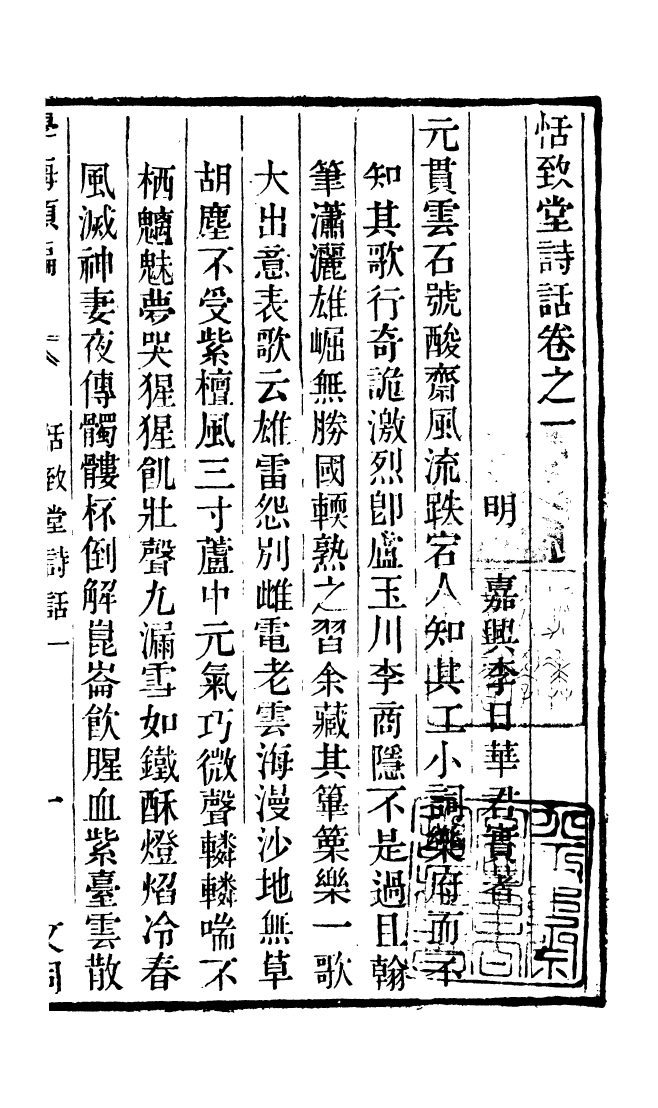 恬致堂詩話卷之一
明　嘉興李日華君實著
元貫雲石號酸齋風流跌宕人知其工小詞樂府而不
知其歌行奇詭激烈卽盧玉川李商隱不是過且翰
筆瀟灑雄崛無勝國輭熟之習余藏其篳篥樂一歌
大出意表歌云雄雷怨別雌電老雲海漫沙地無草
胡塵不受紫檀風三寸蘆中元氣巧微聲轔轔喘不
栖魑魅夢哭猩猩飢壯聲九漏雪如鐵酥燈焰冷春
風滅神妻夜傳髑髏杯倒解崑崙飮腥血紫臺雲散
學海類編　恬致堂詩話一　一